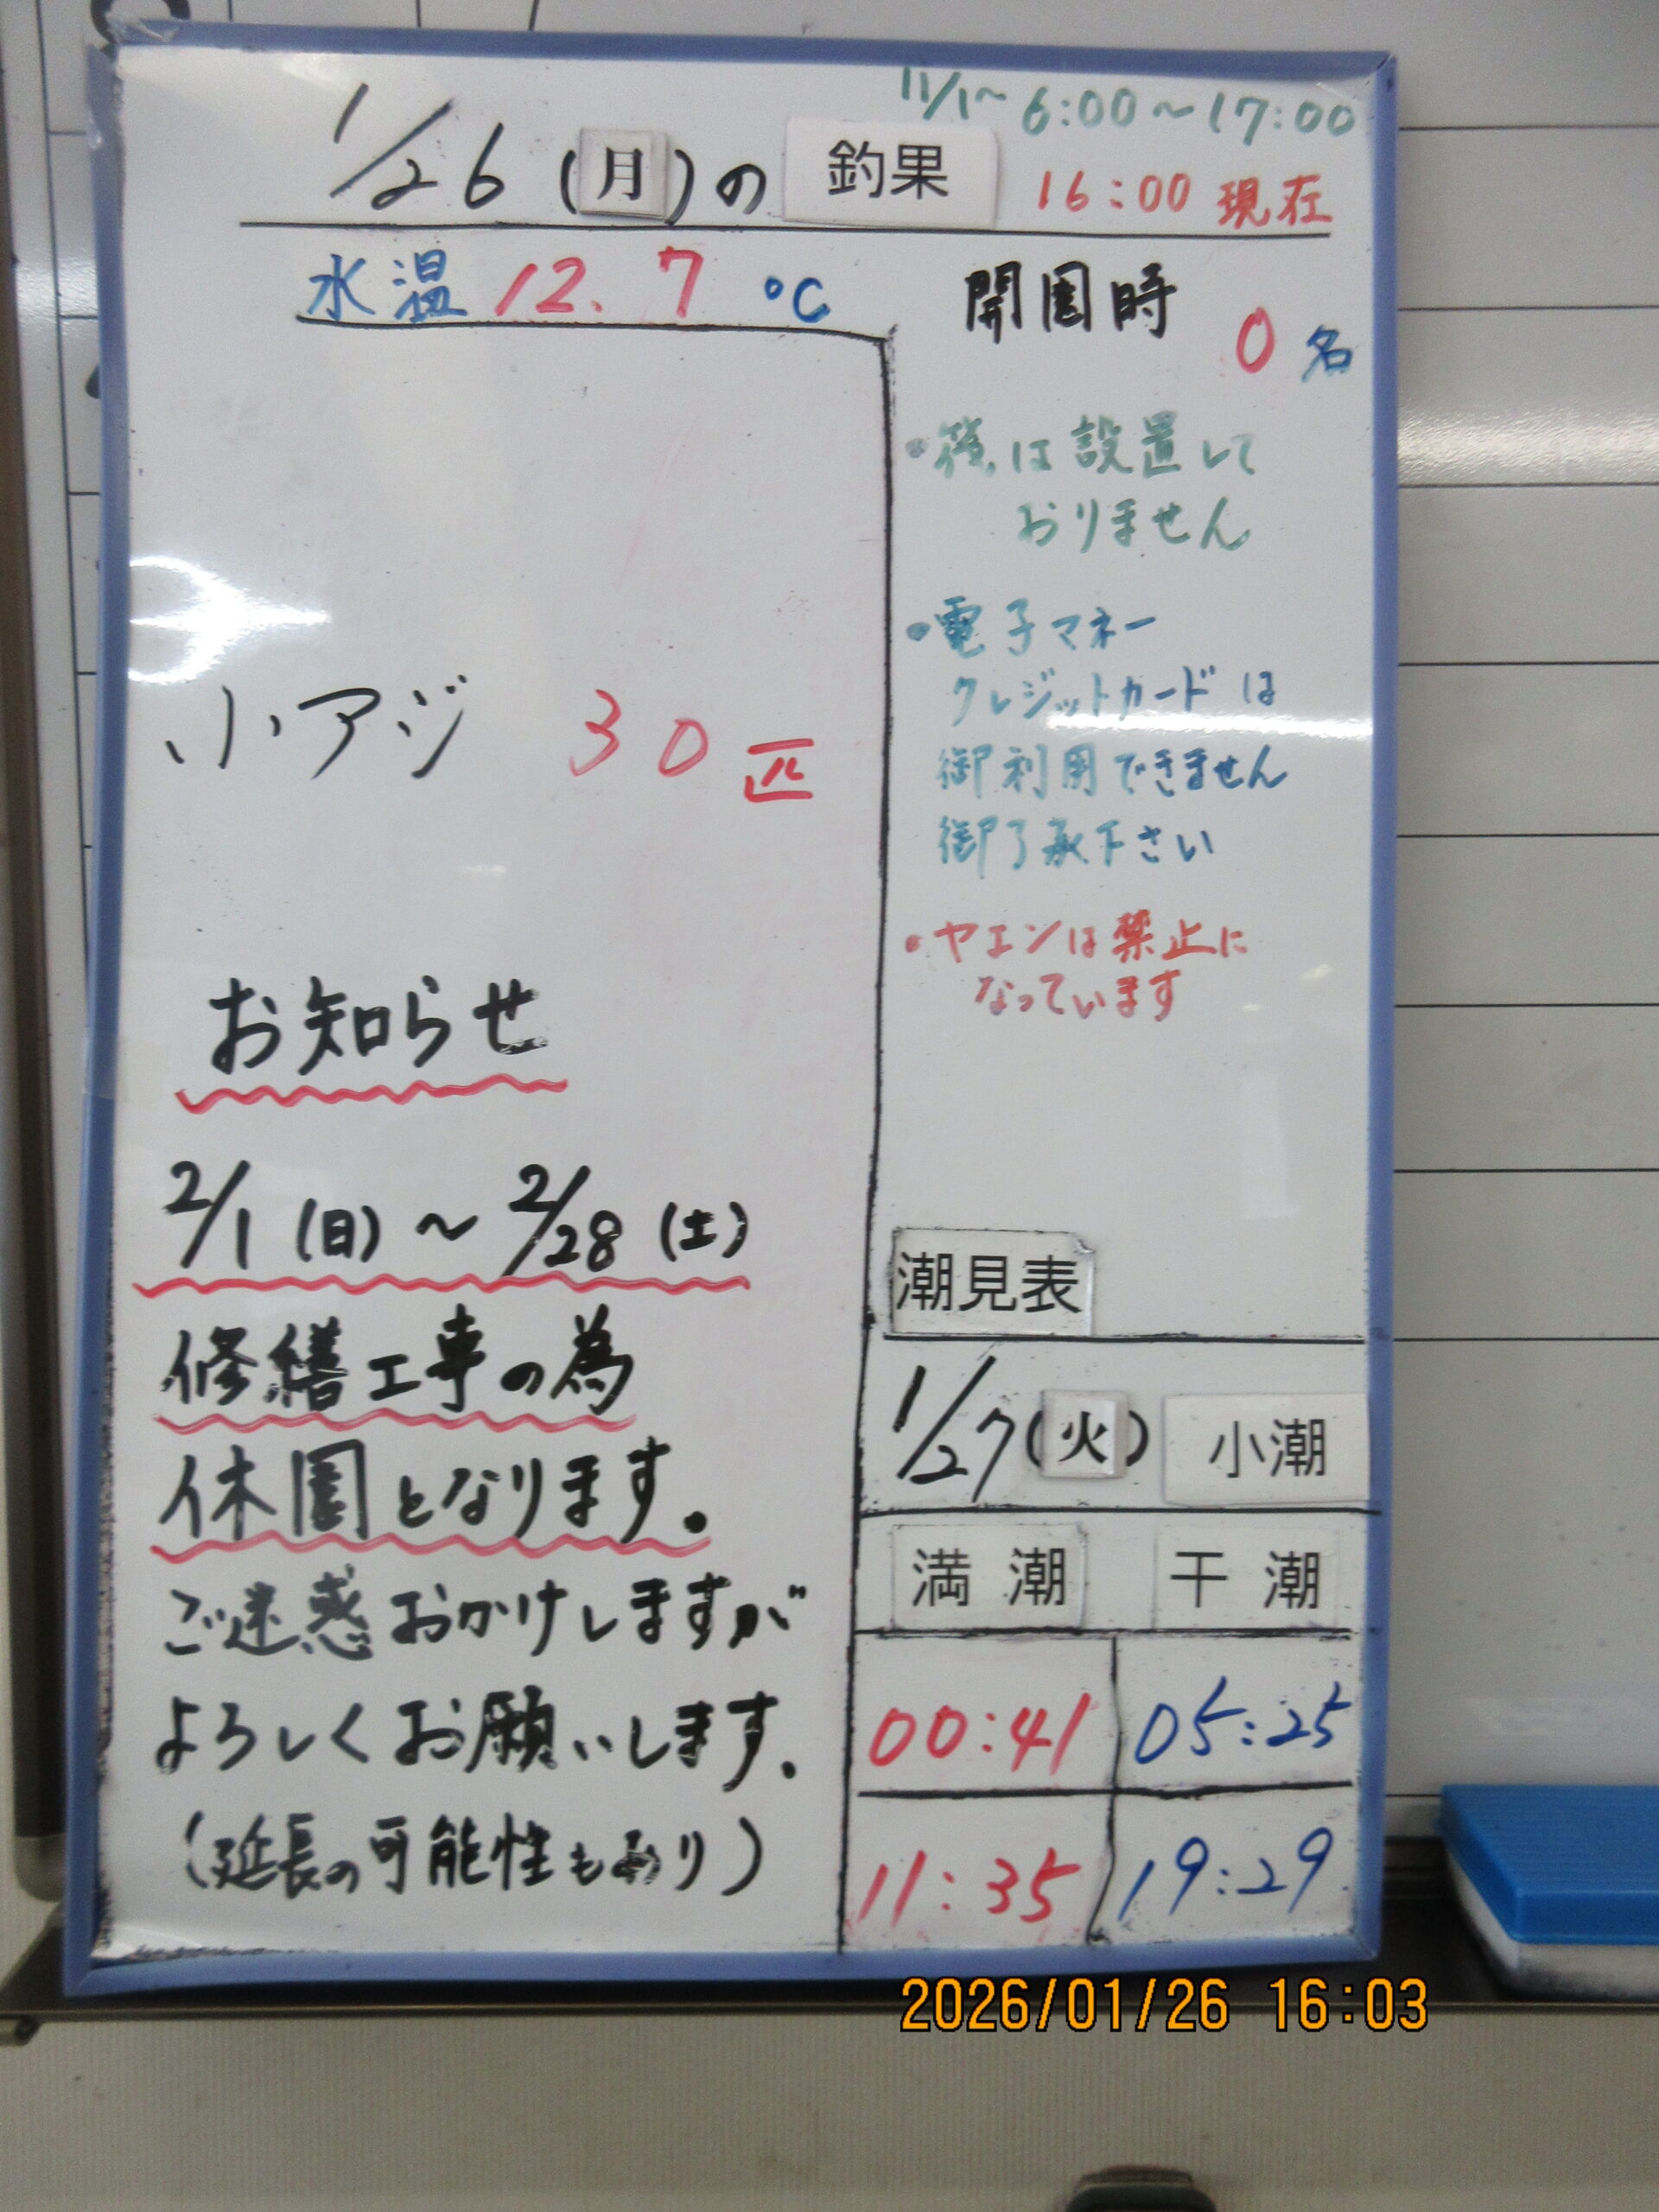 11/1～6:00～17:00
1/26(月)の 釣果 16:00 現在
水温 12.7 ℃
開園時 0名
小アジ 30匹
お知らせ
2/1(日)～2/28(土)
修繕工事の為
休園となります。
ご迷惑おかけしますが
よろしくお願いします。
(延長の可能性もあり)
は設置して
おりません
・電子マネー
クレジットカードは
御利用できません
御了承下さい
・ヤエンは禁止に
なっています
潮見表
1/27(火) 小潮
満潮 干潮
00:41 05:25
11:35 19:29
2026/01/26 16:03